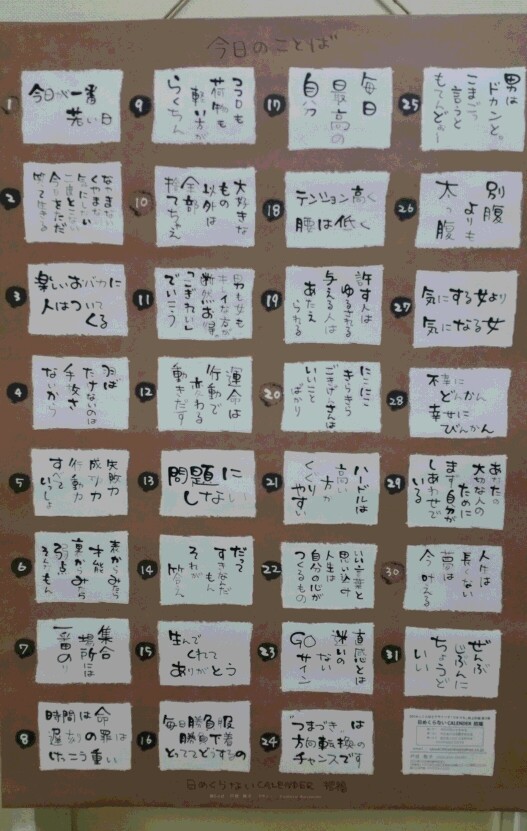 今日のことば
1
今日が一番
若い日
2
なやまない
くやまない
気にしない
二度とこない
今日をただ
笑って生きる
3
楽しいおバカに
人はついて
くる
4
羽ば
たけないのは
手放さ
ないから
5
失敗力
成功力
行動力
すべて
いっしょ
6
表からみたら
才能
裏からみたら
弱点
そんなもん
7
集合
場所には
一番のり
8
時間は命
遅刻の罪は
けっこう重い
9
ココロも
荷物も
軽い方が
らくちん
10
大好きな
もの
以外は
全部
捨てちゃえ
11
男も女も
キレイな方が
断然お得
「こぎれい」
でいこう
12
運命は
行動で
変わる
動きだす
13
問題に
しない
14
だって
すきなんだ
もん
それが
答え
15
生んで
くれて
ありがとう
16
毎日勝負服
勝負下着
とっててどうするの
17
毎日
最高の
自分
18
テンション高く
腰は低く
19
許す人は
ゆるされる
与える人は
あたえ
られる
20
にこにこ
きらきら
ごきげんさんは
いいこと
ばかり
21
ハードルは
高い
方が
くぐり
やすい
22
いい言葉と
思い込み
人生は
自分の心が
つくるもの
23
直感とは
迷いの
ない
GO
サイン
24
"つまづき"は
方向転換の
チャンスです
25
男は
ドカンと。
こまごま
言うと
もてんどぉー
26
別腹
よりも
太っ腹
27
気にする女より
気になる女
28
不幸に
どんかん
幸せに
びんかん
29
あなたの
大切な人の
ために
まず自分が
しあわせで
いる
30
人生は
長くない
夢は
今叶える
31
ぜんぶ
じぶんに
ちょうど
いい
日めくらないCALENDER
日めくらないCALENDER